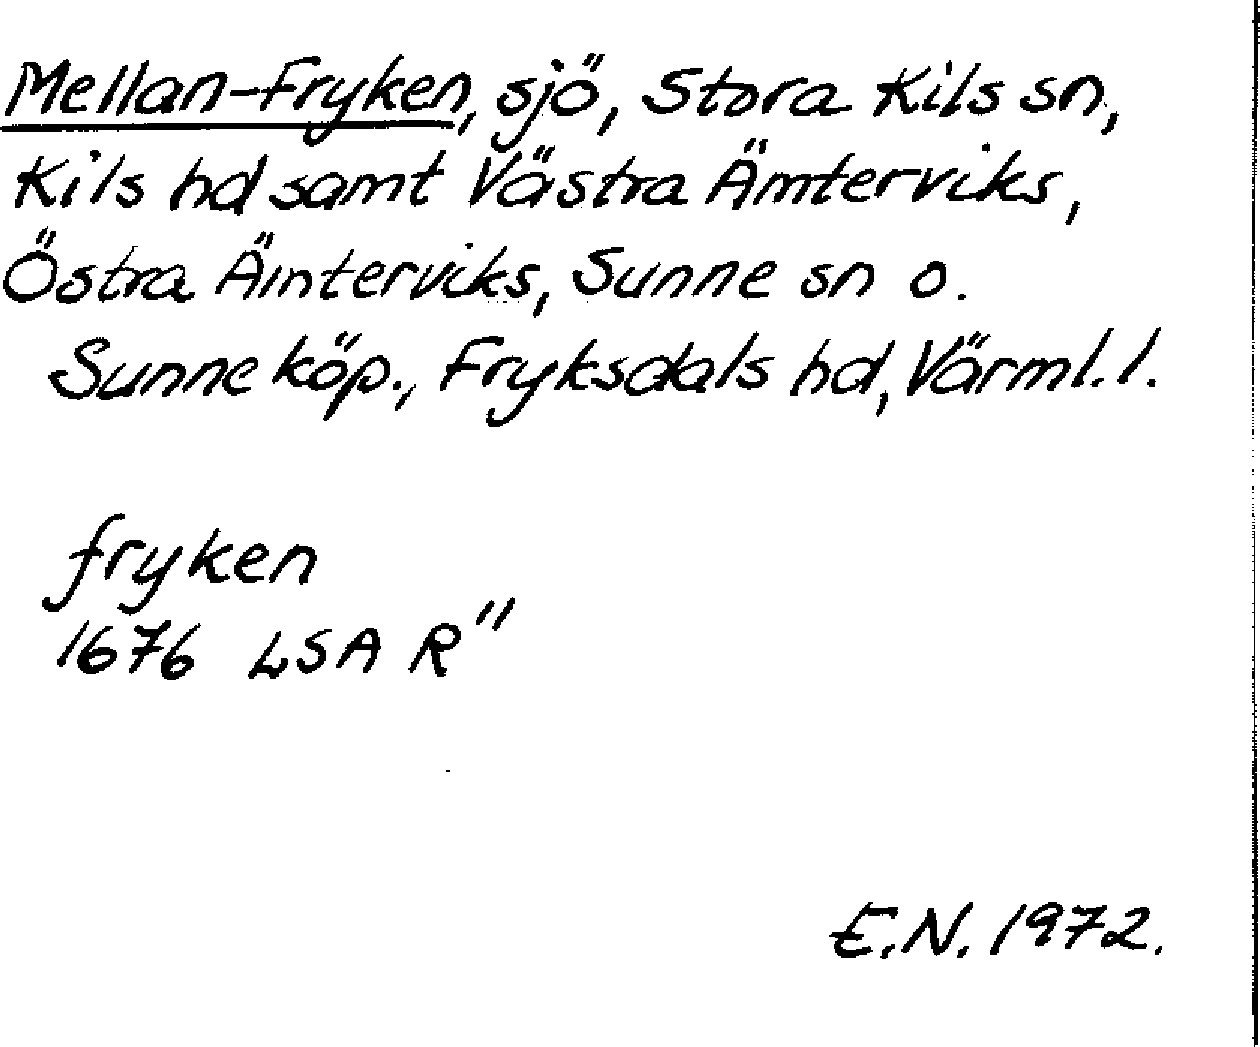 Mellan-Fryken, sjö, Stora Kils sn,
Kils hd samt Västra Ämterviks,
Östra Ämterviks, Sunne sn o.
Sunne köp., Fryksdals hd, Värml. l.
fryken
1676 LSA R"
E.N. 1972.